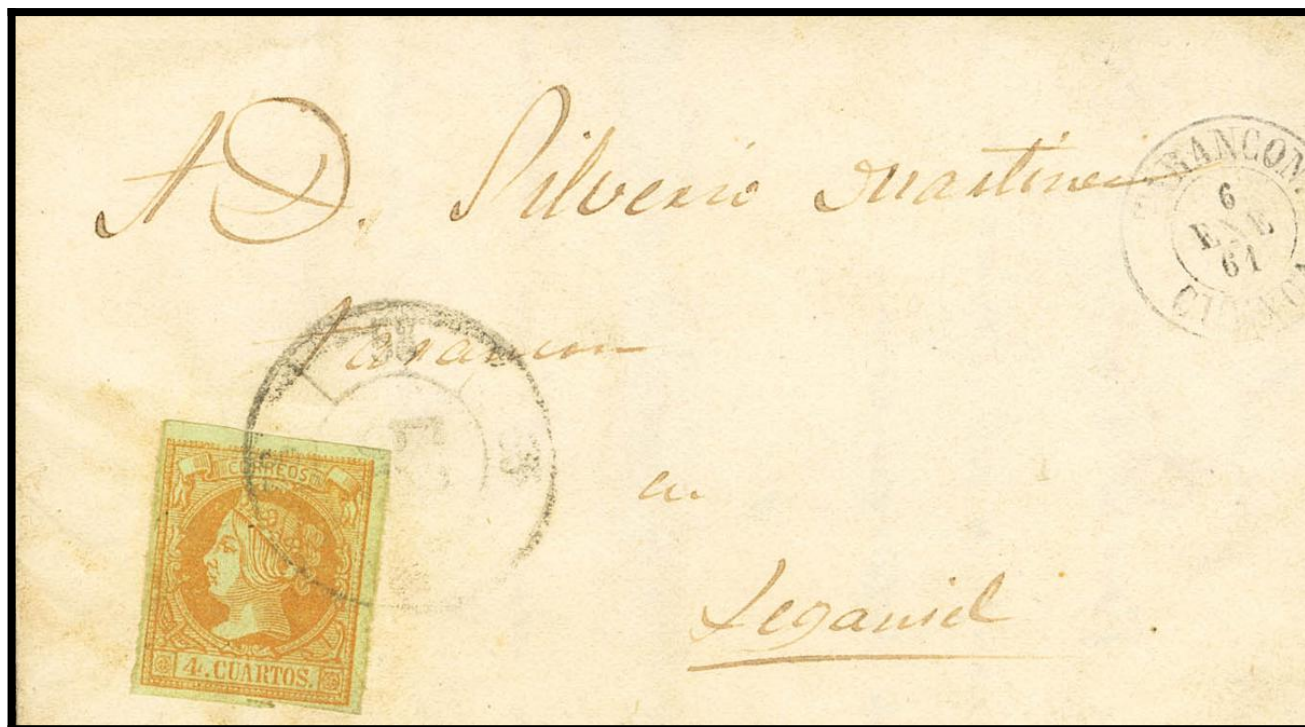 A D. Silverio Martinez
TARANCON
6
ENE
61
CUENCA
Tarancon
en
Leganiel
CORREOS
4 CUARTOS.